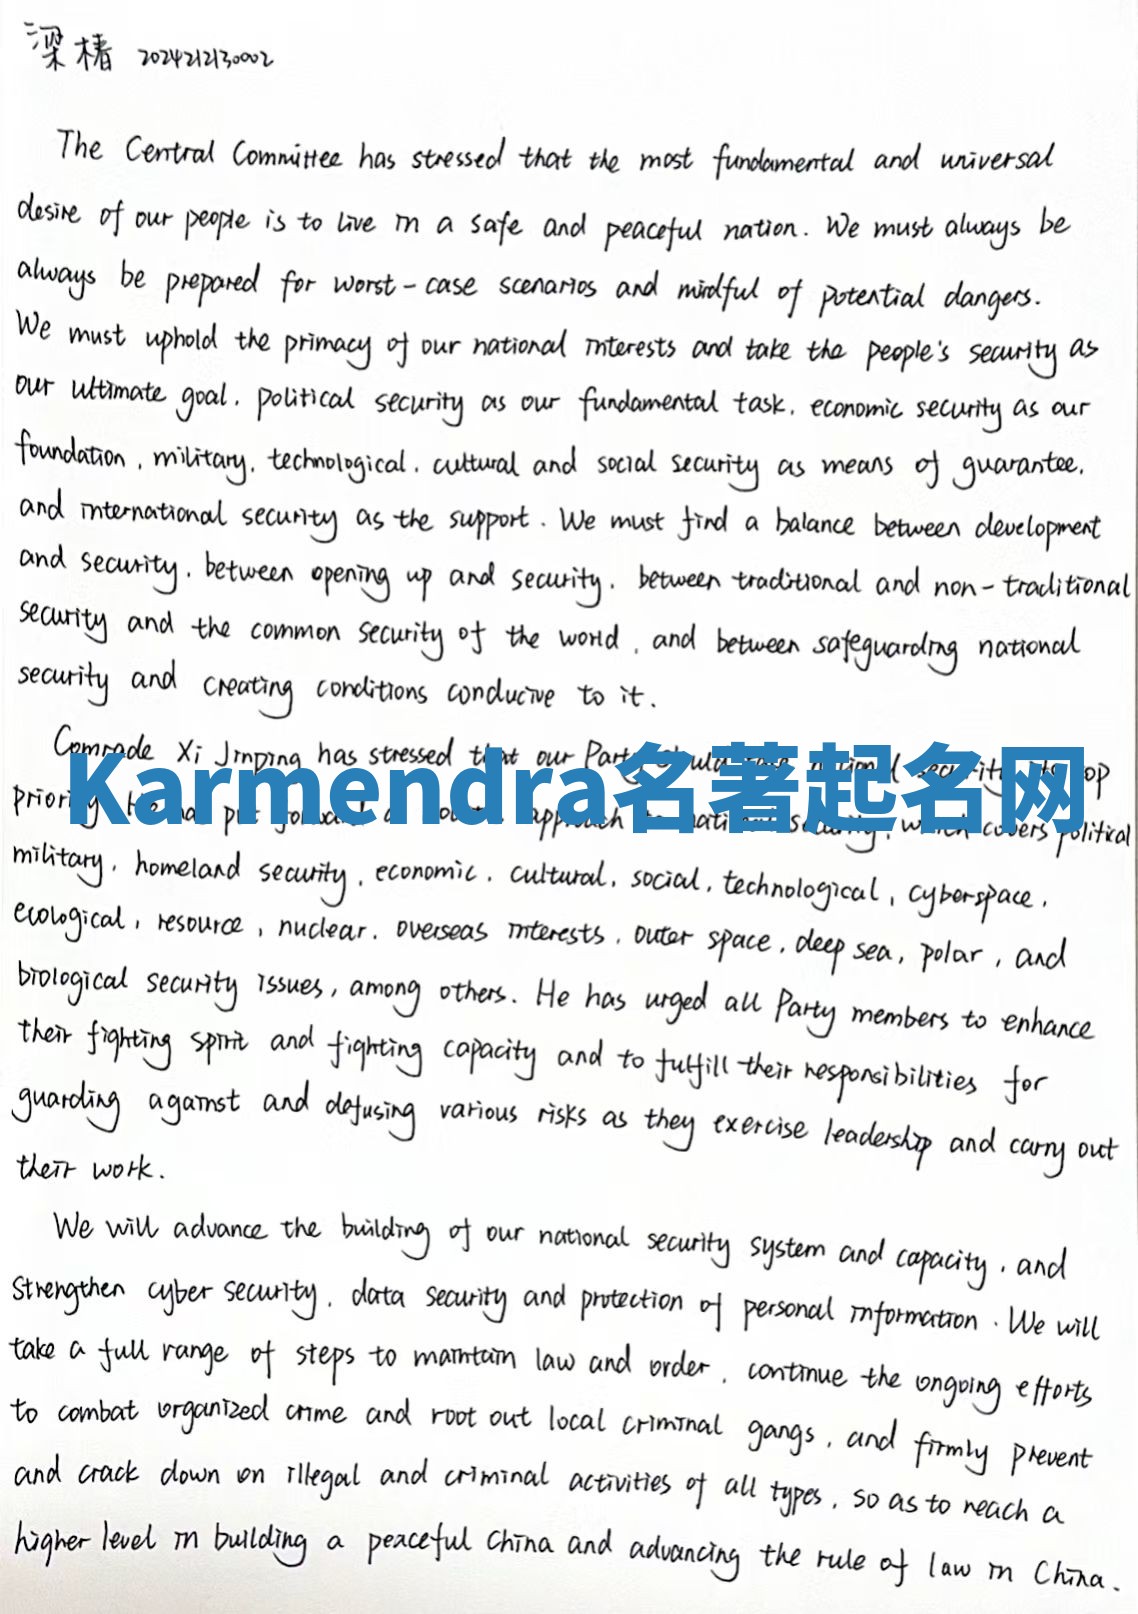 梁椿 2024212130002
The Central Committee has stressed that the most fundamental and universal
desire of our people is to live in a safe and peaceful nation. We must always be
always be prepared for worst-case scenarios and mindful of potential dangers.
We must uphold the primacy of our national interests and take the people's security as
our ultimate goal, political security as our fundamental task, economic security as our
foundation, military, technological, cultural and social security as means of guarantee,
and international security as the support. We must find a balance between development
and security, between opening up and security, between traditional and non-traditional
security and the common security of the world, and between safeguarding national
security and creating conditions conducive to it.
Comrade Xi Jinping has stressed that our Party national security its top
Karmendra名著起名网
priority. He approach national security, which covers political
military, homeland security, economic, cultural, social, technological, cyberspace,
ecological, resource, nuclear, overseas interests, outer space, deep sea, polar, and
biological security issues, among others. He has urged all Party members to enhance
their fighting spirit and fighting capacity and to fulfill their responsibilities for
guarding against and defusing various risks as they exercise leadership and carry out
their work.
We will advance the building of our national security system and capacity, and
strengthen cyber security, data security and protection of personal information. We will
take a full range of steps to maintain law and order, continue the ongoing efforts
to combat organized crime and root out local criminal gangs, and firmly prevent
and crack down on illegal and criminal activities of all types, so as to reach a
higher level in building a peaceful China and advancing the rule of law in China.